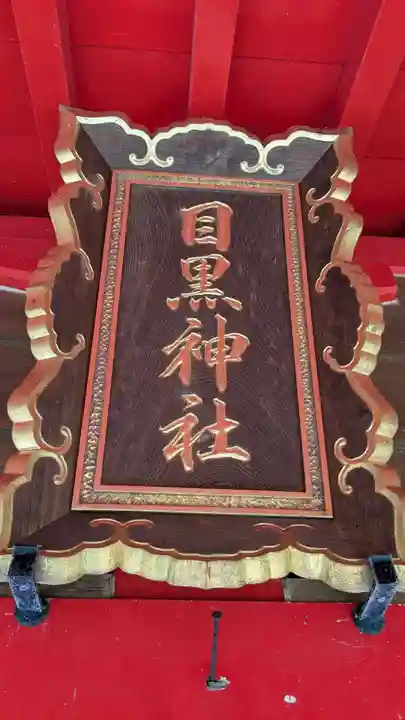 目黒神社